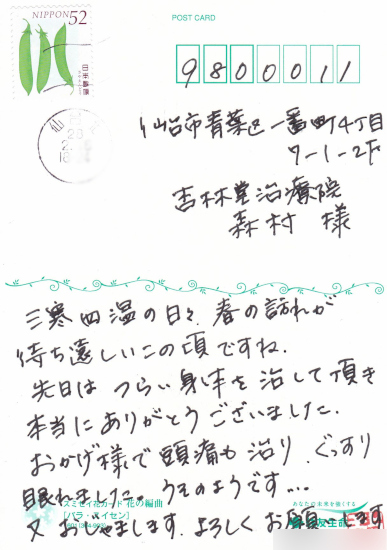 POST CARD
NIPPON 52
日本郵便
9800011
仙台市青葉区一番町4丁目
7-1-2F
吉林堂治療院
森村 様
三寒四温の日々、春の訪れが
待ち遠しいこの頃ですね.
先日は つらい身体を治して頂き
本当にありがとうございました.
おかげ様で頭痛も治り ぐっすり
眠れました。うそのようです...
又 おじゃまします. よろしくお願いします
スミセイ花カード 花の編曲
[バラ・ハイセン]
あなたの未来を強くする
友生命